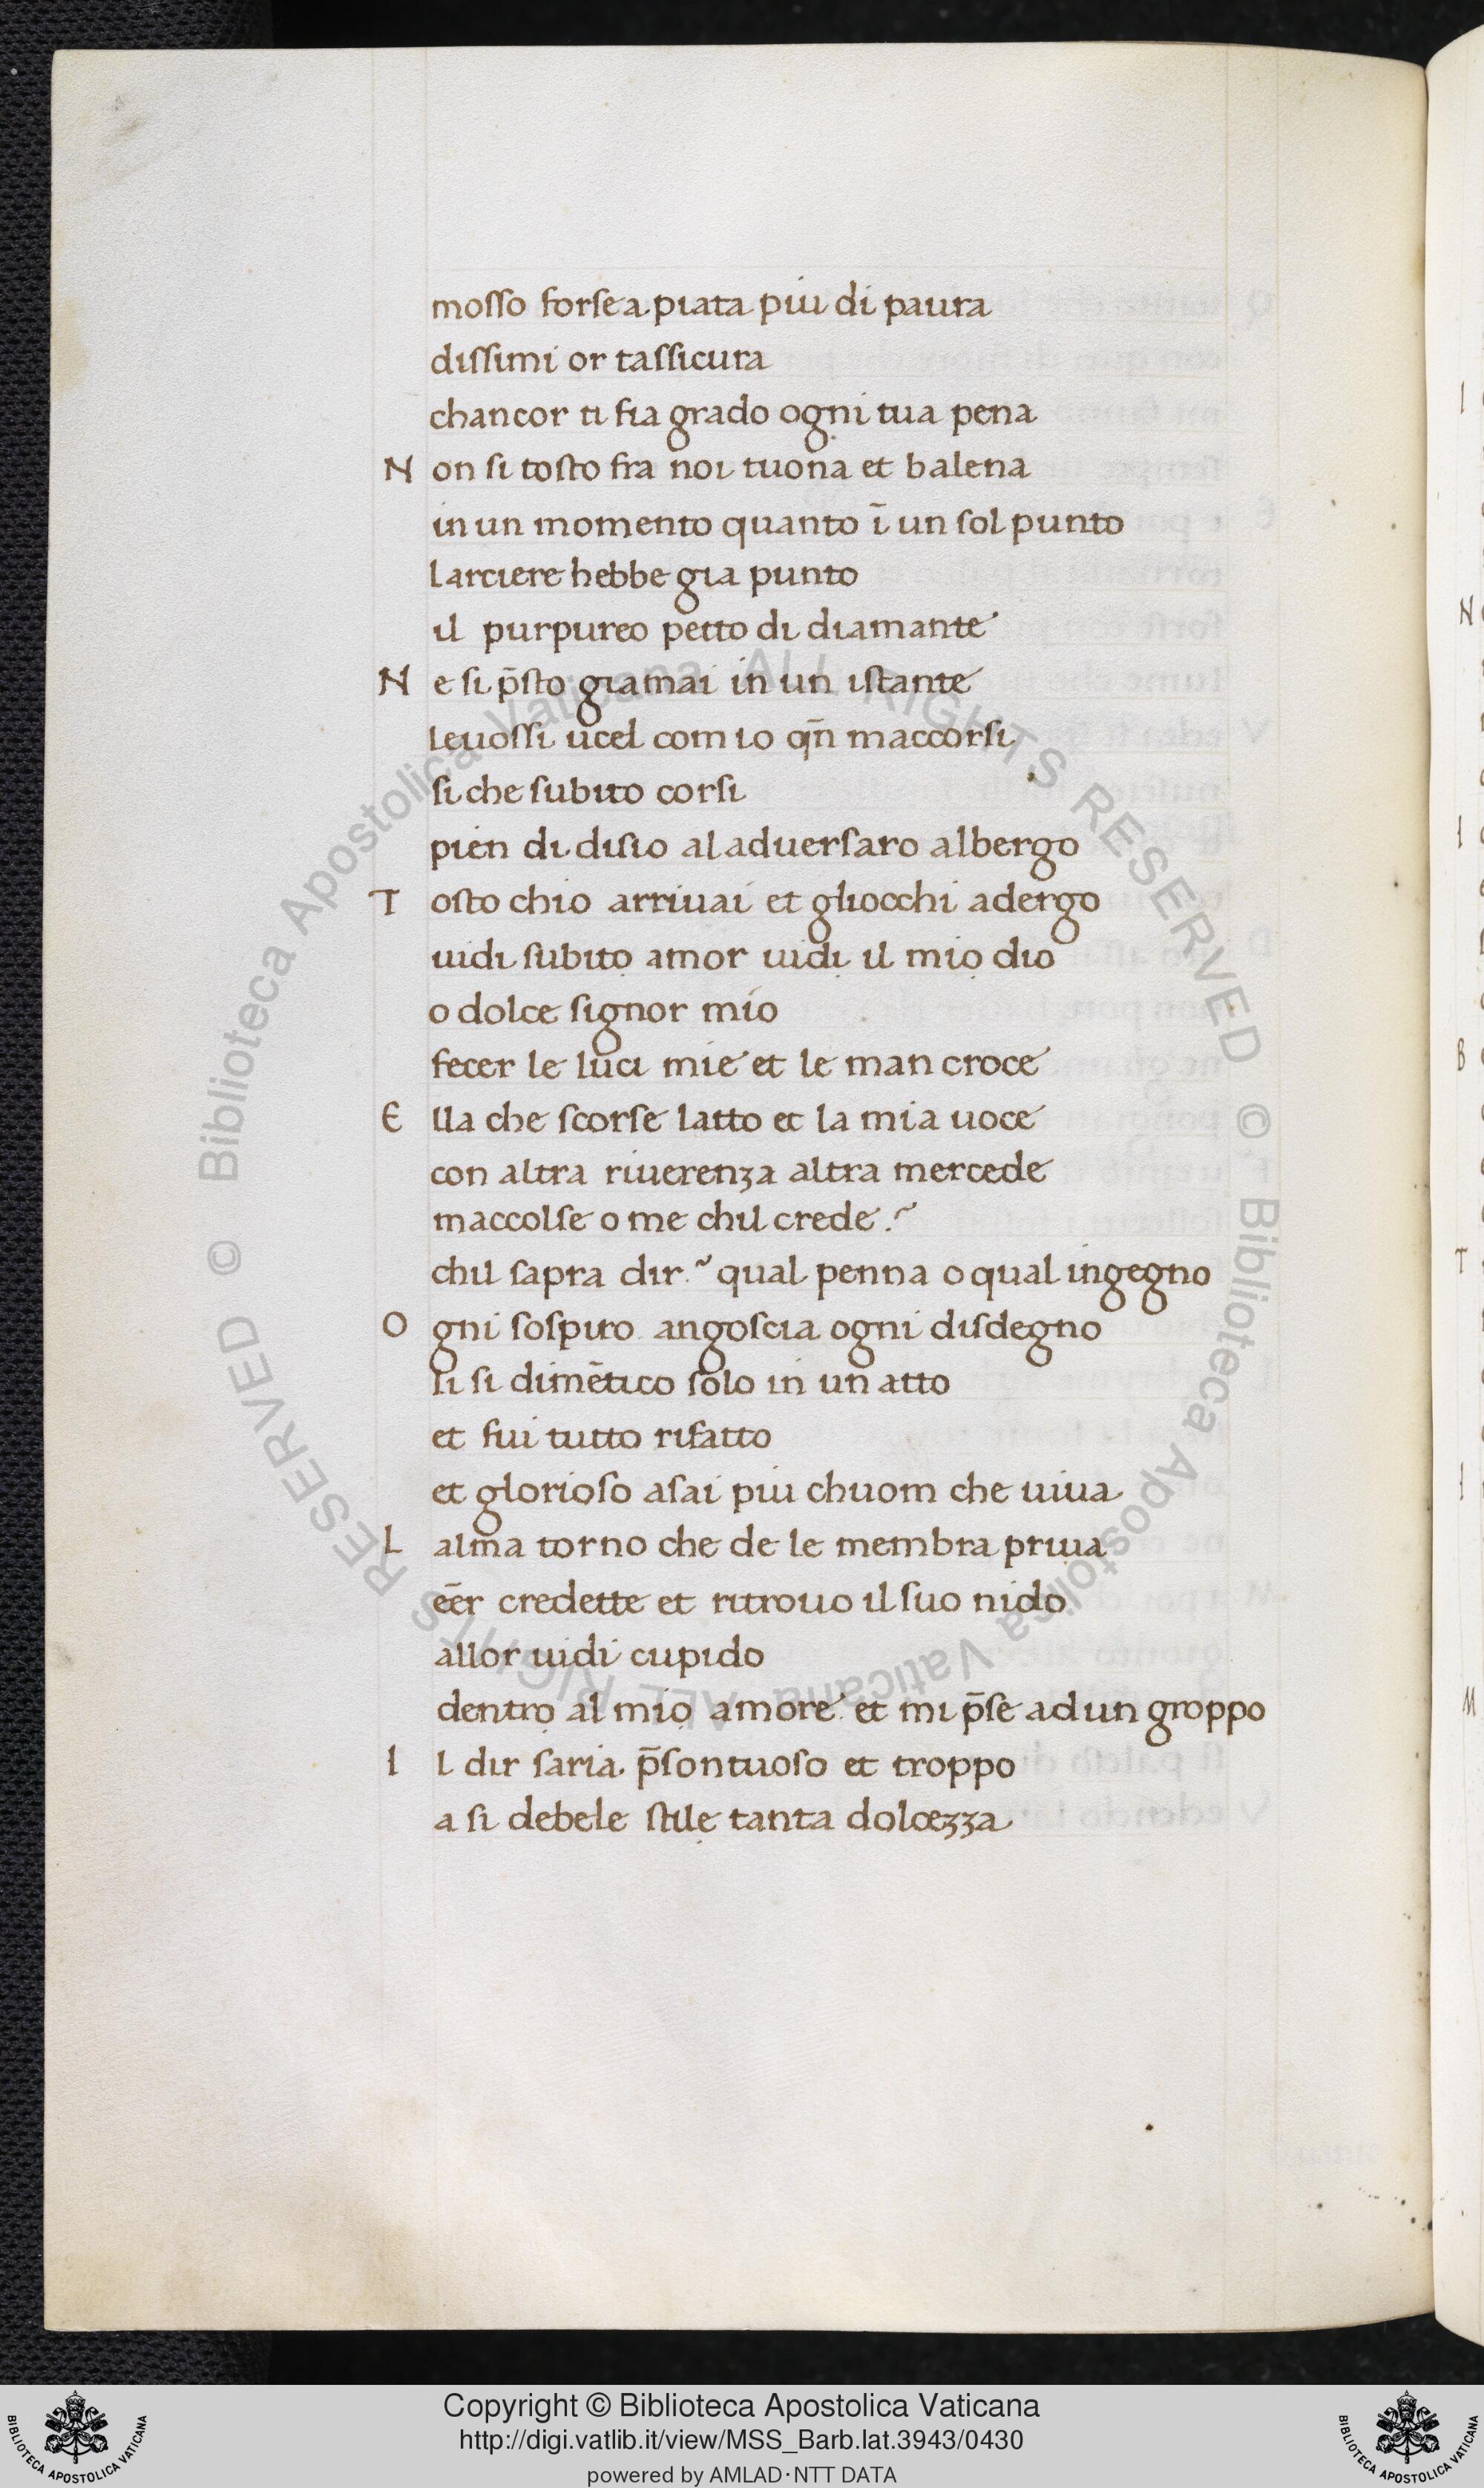 mosso forse a piata piu di paura
dissimi or tassicura
chancor ti fia grado ogni tua pena
N on si tosto fra noi tuona et balena
in un momento quanto ī un sol punto
larciere hebbe gia punto
il purpureo petto di diamante
N e si p̄sto giamai in un istante
leuossi ucel com io qn̄ maccorsi
si che subito corsi
pien di disio al aduersaro albergo
T osto chio arriuai et gliocchi adergo
uidi subito amor uidi il mio dio
o dolce signor mio
fecer le luci mie et le man croce
E lla che scorse latto et la mia uoce
con altra riuerenza altra mercede
maccolse o me chil crede?
chil sapra dir? qual penna o qual ingegno
O gni sospiro angoscia ogni disdegno
li si dimētico solo in un atto
et fui tutto rifatto
et glorioso asai piu chuom che uiua
L alma torno che de le membra priua
eēr credette et ritrouo il suo nido
allor uidi cupido
dentro al mio amore et mi p̄se ad un groppo
I l dir saria p̄sontuoso et troppo
a si debele stile tanta dolcezza
© Biblioteca Apostolica Vaticana ALL RIGHTS RESERVED © Biblioteca Apostolica Vaticana ALL RIGHTS RESERVED
Copyright © Biblioteca Apostolica Vaticana
http://digi.vatlib.it/view/MSS_Barb.lat.3943/0430
powered by AMLAD·NTT DATA
BIBLIOTECA APOSTOLICA VATICANA
BIBLIOTECA APOSTOLICA VATICANA